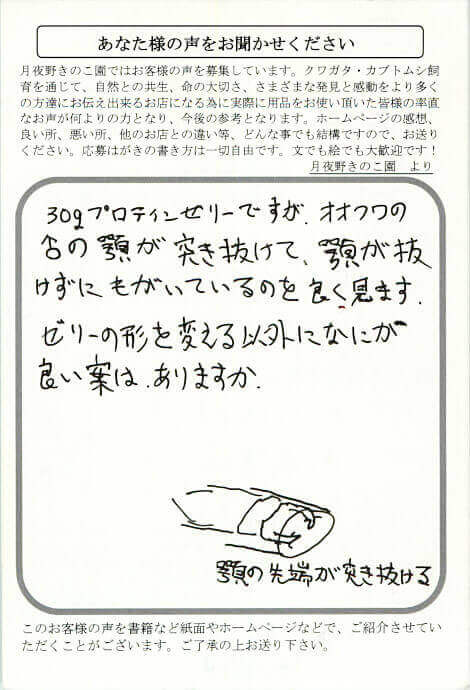 あなた様の声をお聞かせください
月夜野きのこ園ではお客様の声を募集しています。クワガタ・カブトムシ飼
育を通じて、自然との共生、命の大切さ、さまざまな発見と感動をより多く
の方達にお伝え出来るお店になる為に実際に用品をお使い頂いた皆様の率直
なお声が何よりの力となり、今後の参考となります。ホームページの感想、
良い所、悪い所、他のお店との違い等、どんな事でも結構ですので、お送り
ください。応募はがきの書き方は一切自由です。文でも絵でも大歓迎です！
月夜野きのこ園　より
30gプロテインゼリーですが、オオクワの
♂の顎が突き抜けて、顎が抜
けずにもがいているのを良く見ます.
ゼリーの形を変える以外になにか
良い案は.ありますか.
顎の先端が突き抜ける
このお客様の声を書籍など紙面やホームページなどで、ご紹介させてい
ただくことがございます。ご了承の上お送り下さい。